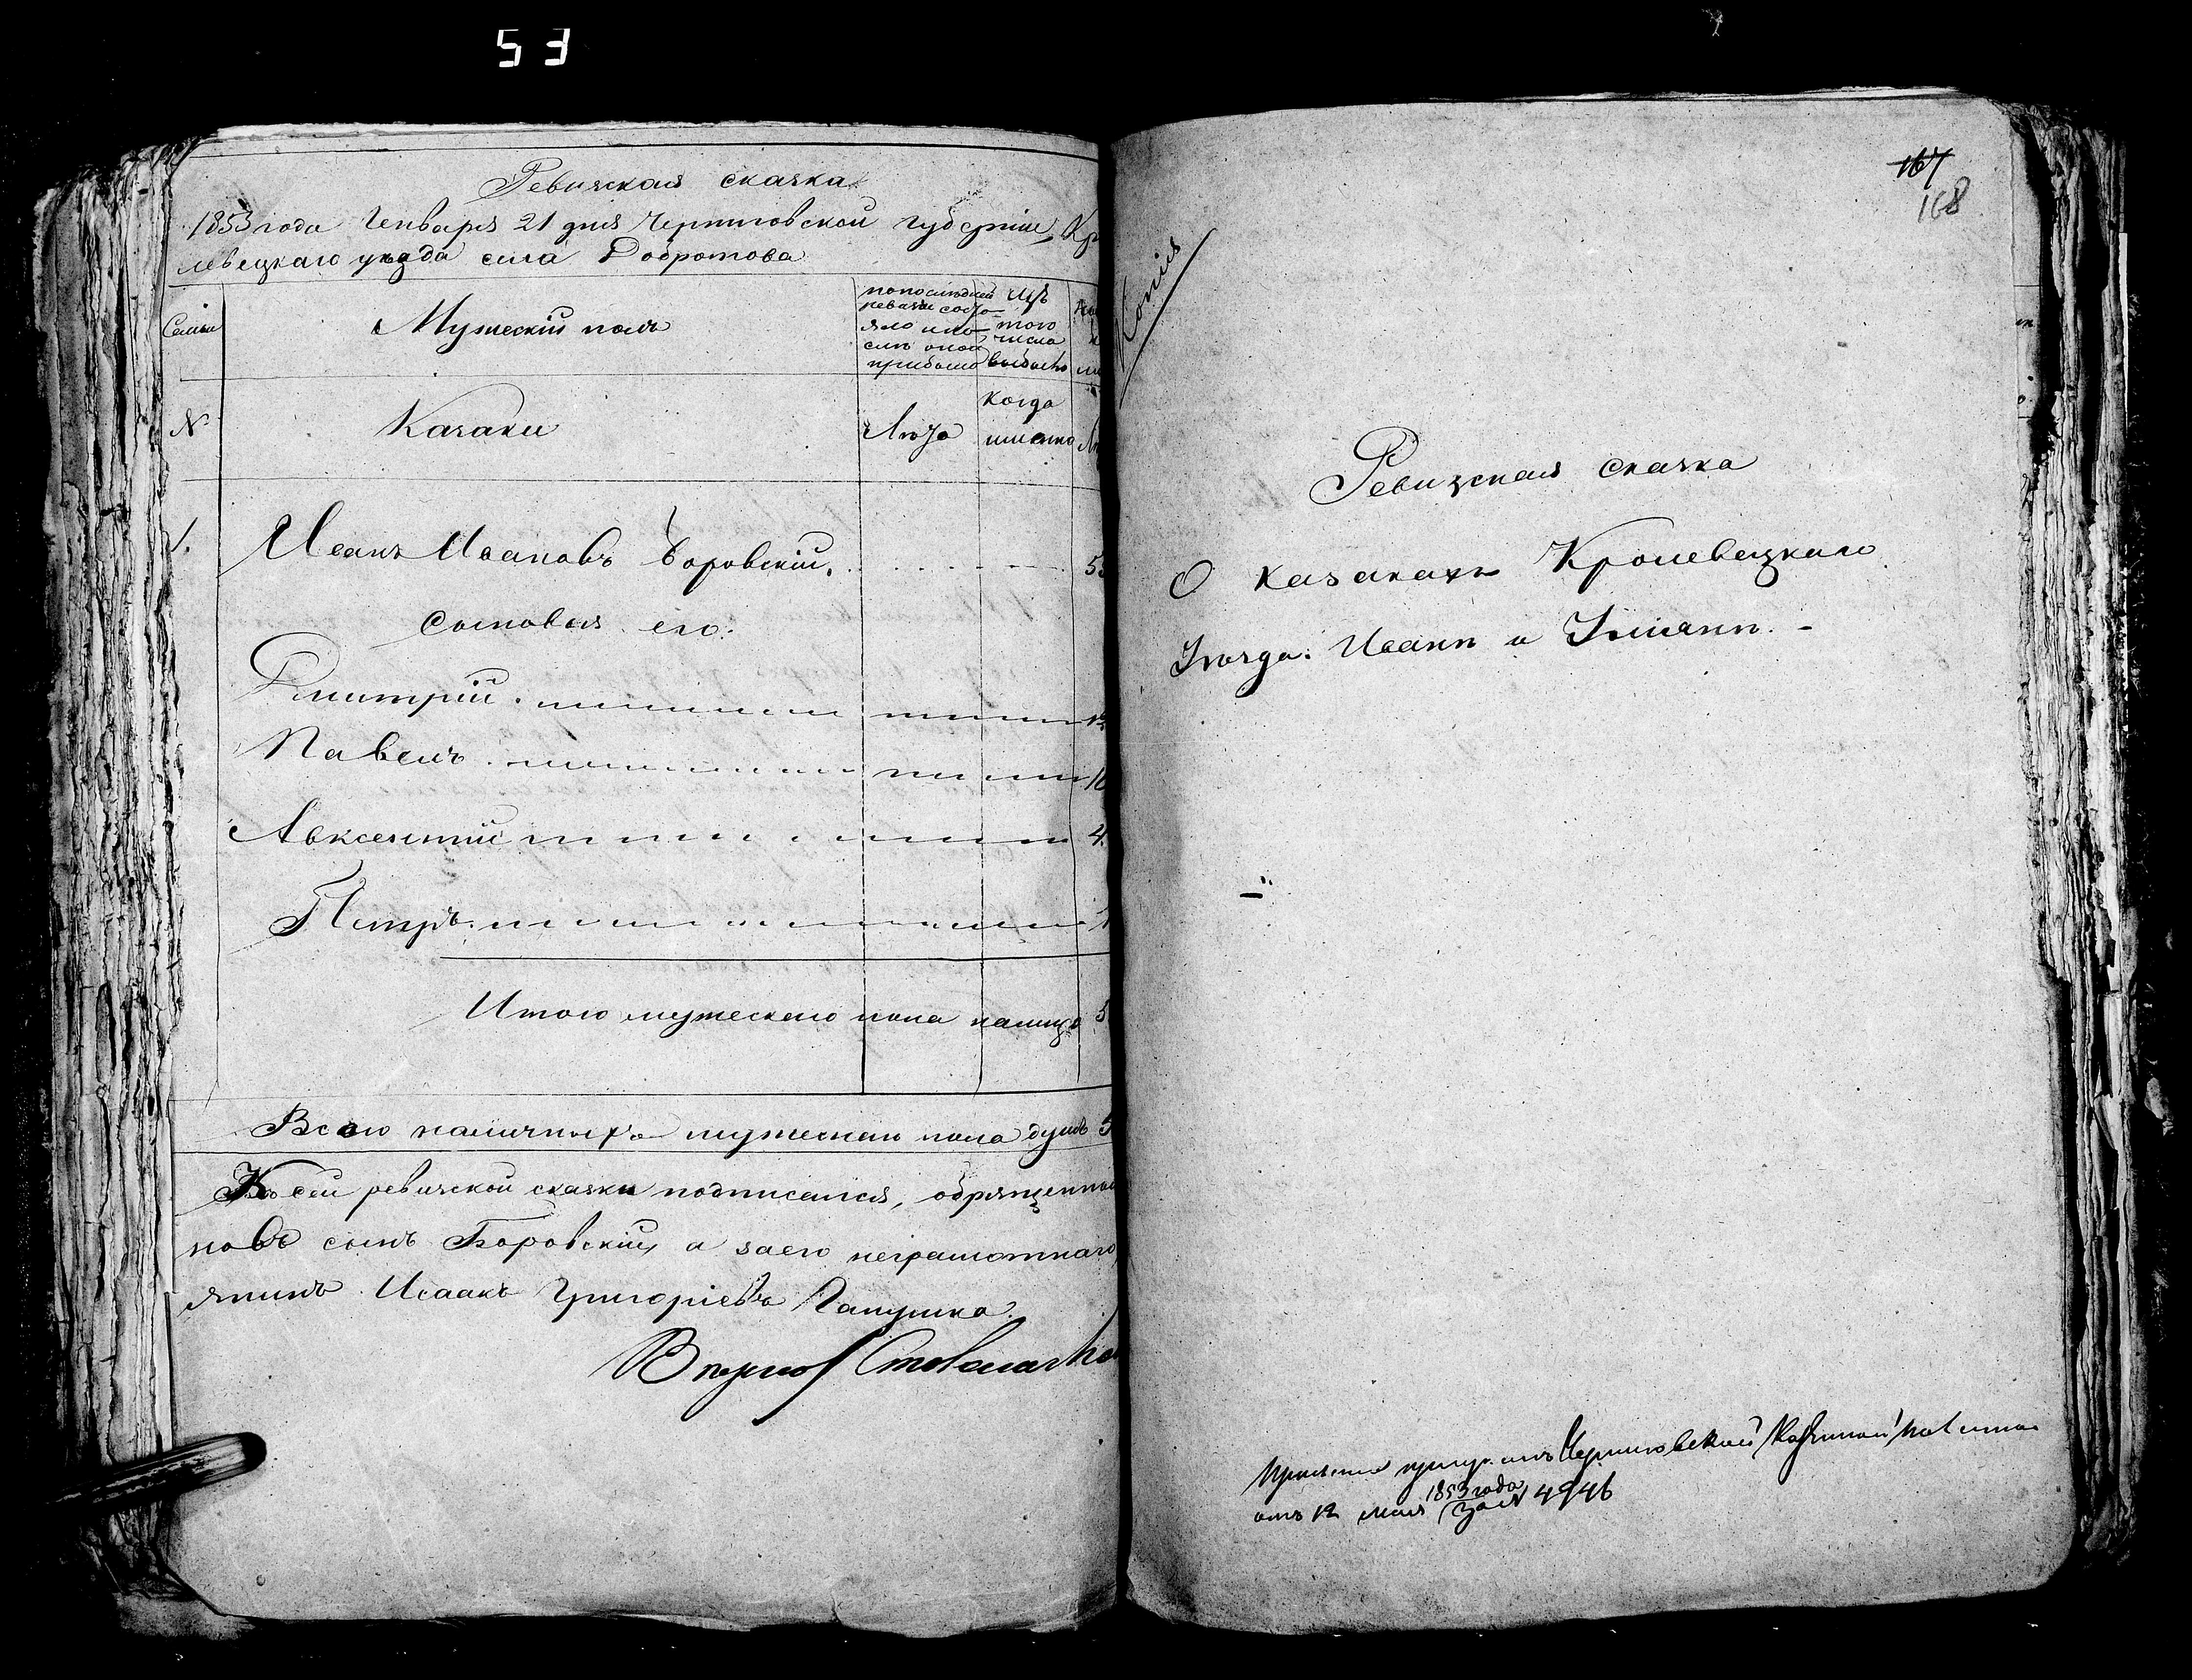 53
Ревизская сказка
1853 года Генваря 21 дня Черниговской губернии, Кро
левецкаго уезда села Добротова
Семьи
Мужеский полъ
по последней
ревизии состо
яло и по
сле оной
прибыло
Изъ
того
числа
выбыло
№
Казаки
Лета
Когда
именно
1.
Иванъ Ивановъ Боровский.
5
Сыновья его:
Дмитрий
Павелъ
Авксентий
4.
Петръ
1
Итого мужескаго пола налицо 5
Всего наличныхъ мужескаго пола душъ 5
Къ сей ревизской сказки подписался, обращенный
новъ сынъ Боровский, а за его неграмотнаго
янинъ Исаакъ Григориевъ Папушка
167
168
Копия
Ревизская сказка
О казакахъ Кролевецкаго
Уезда: Иване и
отъ Черниговской Казенной Палаты
отъ 12 мая 1853 года за № 4946